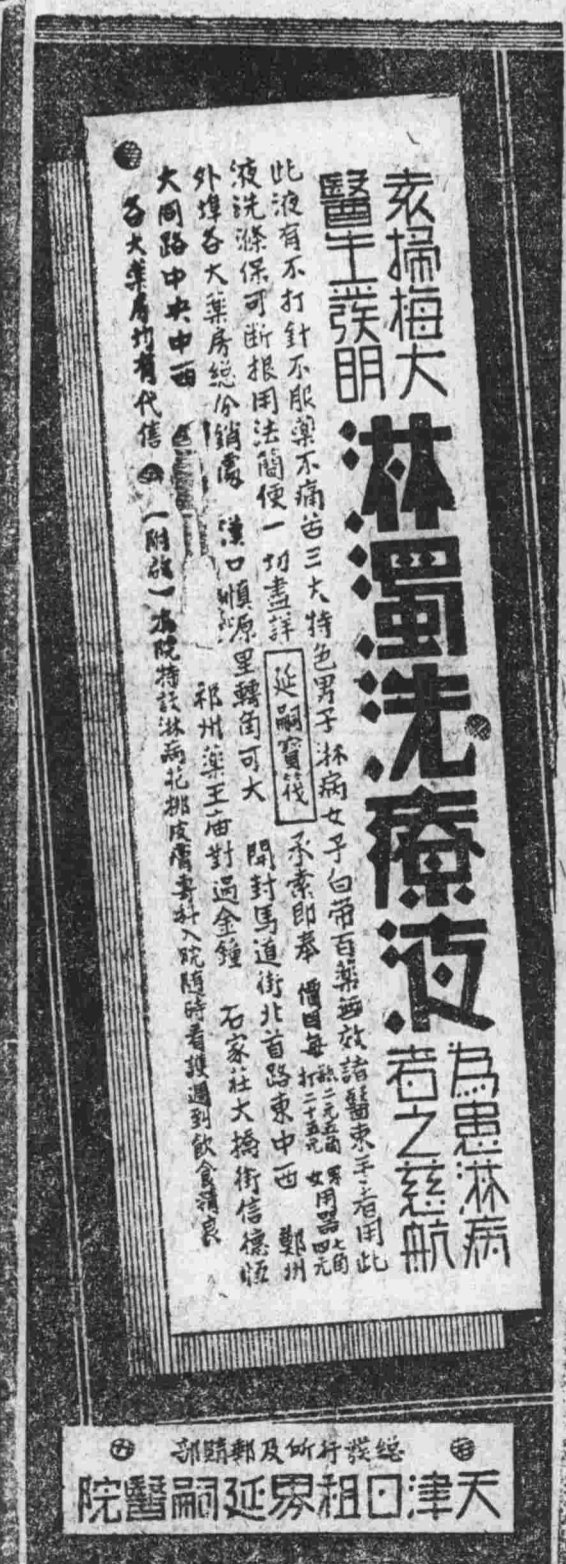 袁掃梅大
醫生發明
淋濁洗療液
為患淋病
者之慈航
此液有不打針不服藥不痛苦三大特色男子淋病女子白帶百藥無效諸醫束手者用此
液洗滌保可斷根用法簡便一切盡詳 延嗣寶筏 承索即奉 價目每瓶二元五角 打二十五元 男用器七角 女用器四元
外埠各大藥房總分銷處 漢口順原里轉角可大 開封馬道街北首路東中西 鄭州
大同路中央中西 祁州藥王庙對過金鐘 石家莊大橋街信德恒
各大藥房均有代售 (附啟)本院特設淋病花柳皮膚專科入院隨時看護週到飲食精良
總發行所及郵購部
天津日租界延嗣醫院